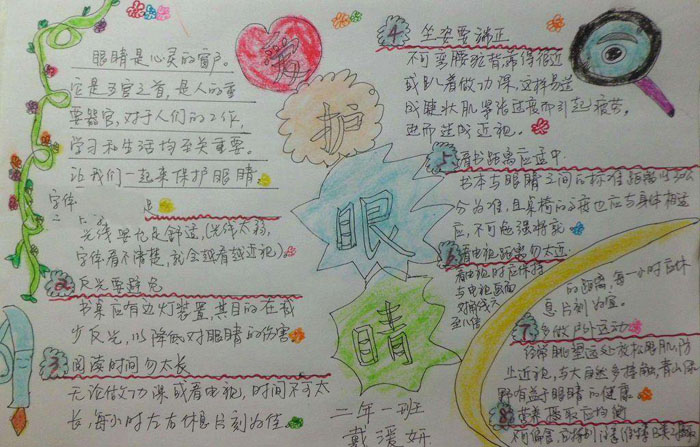 爱
护
眼
睛
二年一班
戴湲妍
眼睛是心灵的窗户。
它是五官之首，是人的重
要器官，对于人们的工作，
学习和生活均至关重要。
让我们一起来保护眼睛。
光线要充足舒适，(光线太弱，
字体看不清楚，就会越看越近视)。
2 反光要避免
书桌应有边灯装置，其目的在减
少反光，以降低对眼睛的伤害
3 阅读时间勿太长
无论做功课或看电视，时间不可太
长，每小时左右休息片刻为佳
4 坐姿要端正
不可弯腰驼背靠得很近
或趴着做功课，这样易造
成睫状肌紧张过度而引起疲劳，
进而造成近视。
5 看书距离应适中
书本与眼睛之间的标准距离
分为准，且桌椅的高度也应与身体相适
应，不可勉强将就
6 看电视距离勿太近
看电视时应保持
与电视画面
对角线
的距离，每一小时应休
息片刻为宜。
7 多做户外运动
经常眺望远处放松眼肌，防
止近视，与大自然多接触，青山绿
野有益于眼睛的健康
8 营养摄取应均衡
不可偏食